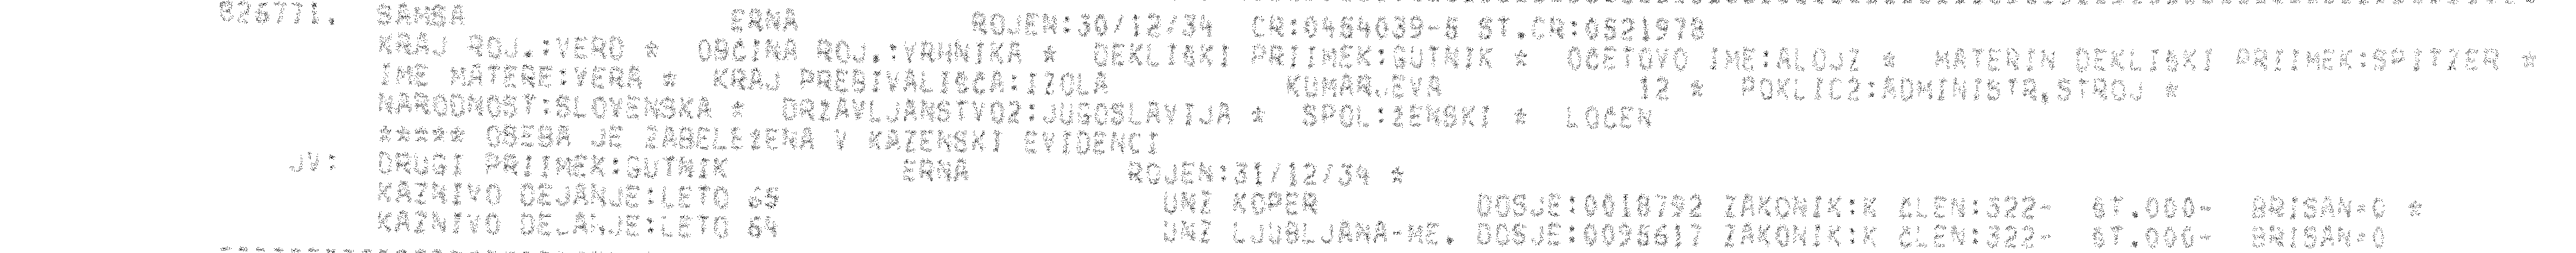 826771. SAMSA ERNA ROJEN:30/12/34 CR:0454039-5 ST.CR:0521978
KRAJ ROJ.:VERD * OBČINA ROJ.:VRHNIKA * DEKLIŠKI PRIIMEK:GUTNIK * OČETOVO IME:ALOJZ * MATERIN DEKLIŠKI PRIIMEK:SPITZER *
IME MATERE:VERA * KRAJ PREBIVALIŠČA:IZOLA KUMARJEVA 12 * POKLIC2:ADMINISTR,STROJ *
NARODNOST:SLOVENSKA * DRŽAVLJANSTVO2:JUGOSLAVIJA * SPOL:ŽENSKI * LOČEN
***** OSEBA JE ZABELEŽENA V KAZENSKI EVIDENCI
JV: DRUGI PRIIMEK:GUTNIK ERNA ROJEN:31/12/34 *
KAZNIVO DEJANJE:LETO 65 UNZ KOPER DOSJE:0018792 ZAKONIK:K ČLEN:322- ŠT.000- BRISAN=0 *
KAZNIVO DEJANJE:LETO 64 UNZ LJUBLJANA-ME. DOSJE:0095617 ZAKONIK:K ČLEN:322- ŠT.000- BRISAN=0